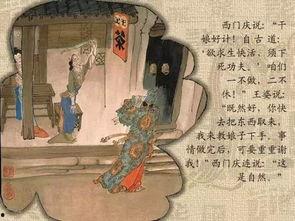 茶
西门庆说：“干
娘好计！自古道：
‘欲求生快活，须下
死功夫。’咱们
一不做，二不
休！”王婆说：
“既然好，你快
去把东西取来，
我来教娘子下手。事
情做完后，可要重重谢
我！”西门庆连说：“这
是自然。”